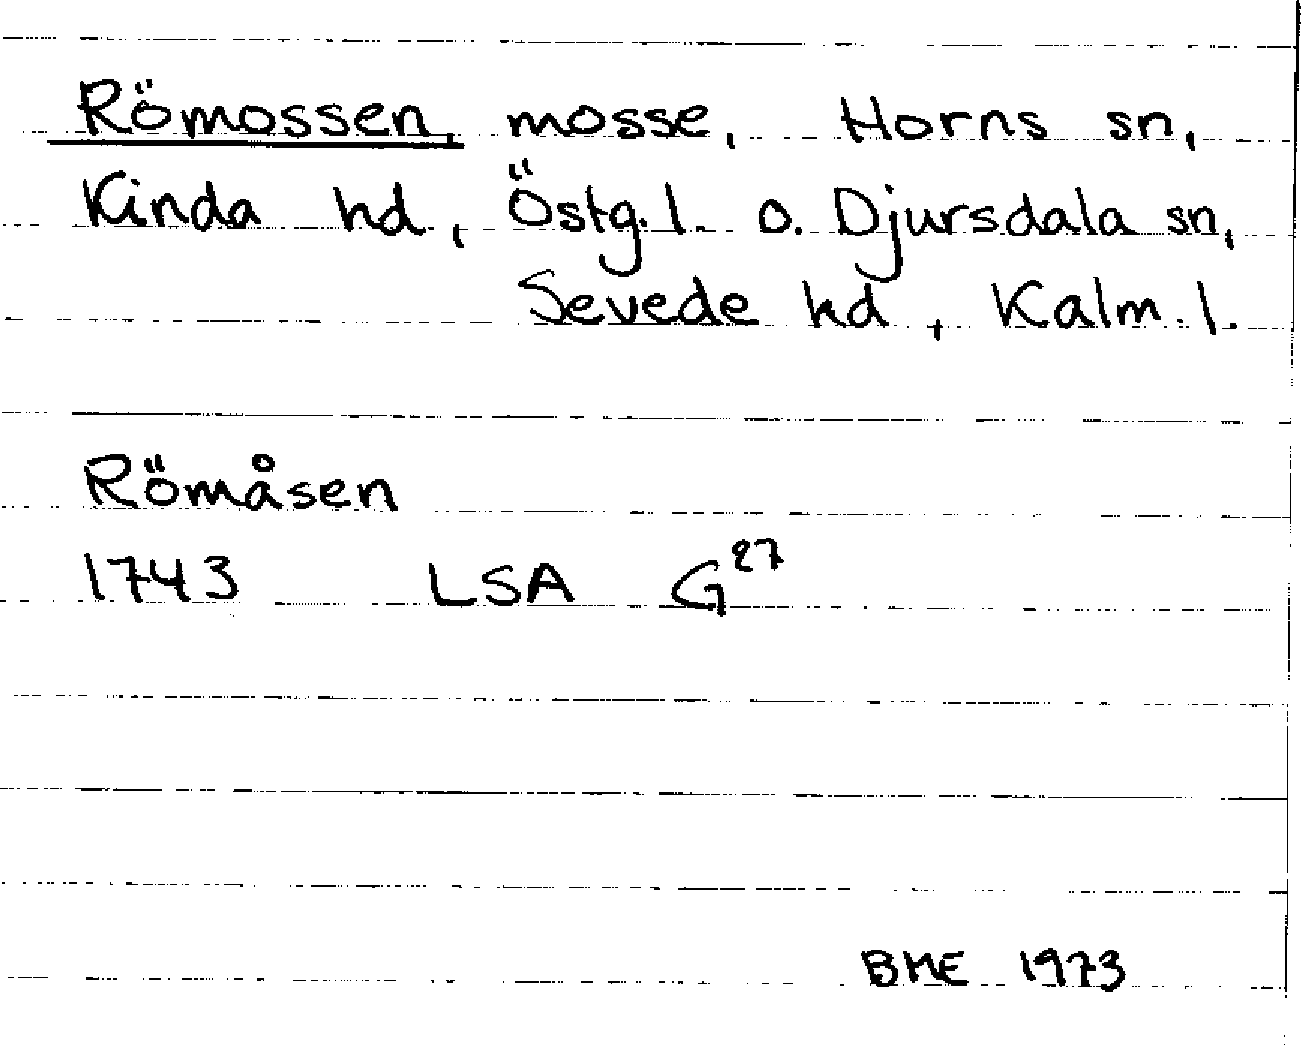 Römossen, mosse, Horns sn,
Kinda hd, Östg. l. o. Djursdala sn,
Sevede hd, Kalm. l.
Römåsen
1743 LSA G27
BME 1973